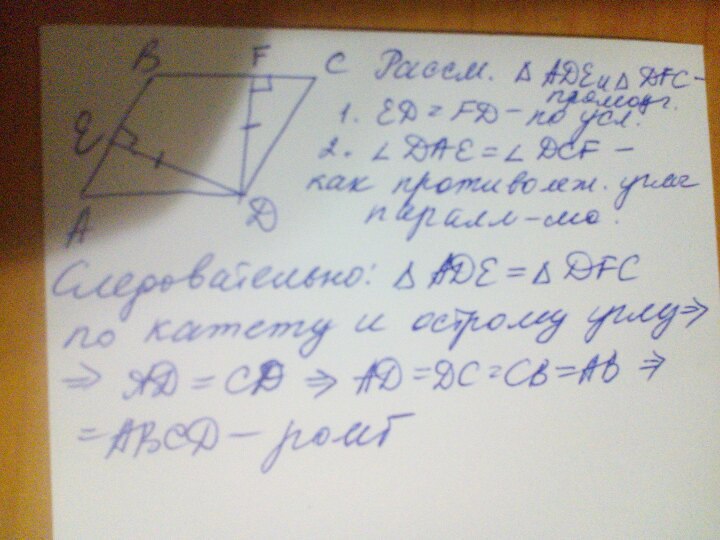 B F C
E
A D
Рассм. △ ADE и △ DFC –
прямоуг.
1. ED = FD – по усл.
2. ∠ DAE = ∠ DCF –
как противолеж. углы
паралл-ма.
Следовательно: △ ADE = △ DFC
по катету и острому углу ⇒
⇒ AD = CD ⇒ AD = DC = CB = AB ⇒
= ABCD – ромб